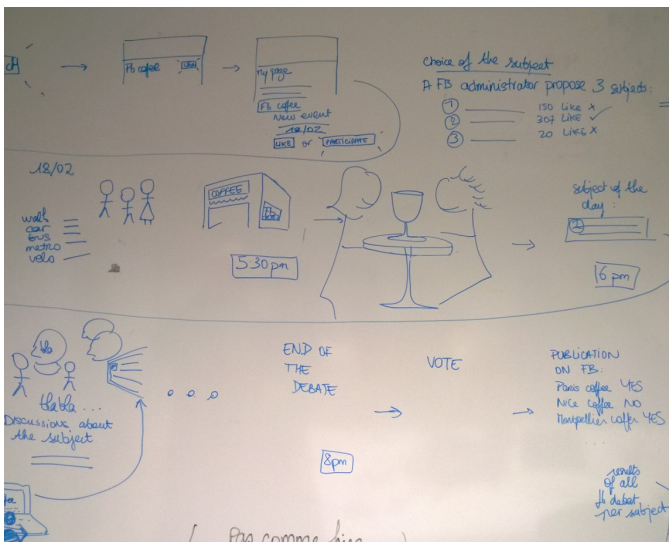 Fb coffee
LIKE
My page
Fb coffee
New event
18/02
LIKE or PARTICIPATE
choice of the subject
A FB administrator propose 3 subjects:
1 150 Like x
2 307 LIKE ✓
3 20 LIKES x
18/02
walk
car
bus
metro
velo
COFFEE
Fb
5:30 pm
subject of the
day:
2
6 pm
bla
blabla ...
Discussions about
the subject
END OF
THE
DEBATE
8pm
VOTE
PUBLICATION
ON FB:
Paris coffee YES
Nice coffee NO
Montpellier coffee YES
....
results
of all
fb debat
per subject
Pas comme